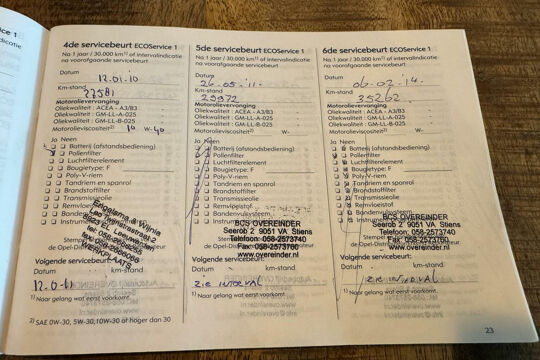 4de servicebeurt ECOService 1
Na 1 jaar / 30.000 km¹⁾ of intervalindicatie
na voorafgaande servicebeurt
Datum
12.01.10
Km-stand
27581
Motorolievervanging
Oliekwaliteit: ACEA - A3/B3
Oliekwaliteit: GM-LL-A-025
Oliekwaliteit: GM-LL-B-025
Motorolieviscositeit²⁾ 10 W-40
Ja Neen
Batterij (afstandsbediening)
Pollenfilter
Luchtfilterelement
Bougietype: F
Poly-V-riem
Tandriem en spanrol
Brandstoffilter
Transmissieolie
Remvloeistof
Stempel
de Opel-
Volgende servicebeurt:
Datum km-stand
¹⁾ Naar gelang wat eerst voorkomt.
²⁾ SAE 0W-30, 5W-30, 10W-30 of hoger dan 30
5de servicebeurt ECOService 1
Na 1 jaar / 30.000 km¹⁾ of intervalindicatie
na voorafgaande servicebeurt
Datum
26-05-'11
Km-stand
29972
Motorolievervanging
Oliekwaliteit: ACEA - A3/B3
Oliekwaliteit: GM-LL-A-025
Oliekwaliteit: GM-LL-B-025
Motorolieviscositeit²⁾ W-
Ja Neen
Batterij (afstandsbediening)
Pollenfilter
Luchtfilterelement
Bougietype: F
Poly-V-riem
Tandriem en spanrol
Brandstoffilter
Transmissieolie
Remvloeistof
BCS OVEREINDER
Seerob 2 9051 VA Stiens
Telefoon: 058-2573740
Fax: 058-2573760
www.overeinder.nl
Volgende servicebeurt:
Datum km-stand
ZIE INTERVAL
¹⁾ Naar gelang wat eerst voorkomt.
6de servicebeurt ECOService 1
Na 1 jaar / 30.000 km¹⁾ of intervalindicatie
na voorafgaande servicebeurt
Datum
06-02-'14
Km-stand
35262
Motorolievervanging
Oliekwaliteit: ACEA - A3/B3
Oliekwaliteit: GM-LL-A-025
Oliekwaliteit: GM-LL-B-025
Motorolieviscositeit²⁾ W-
Ja Neen
Batterij (afstandsbediening)
Pollenfilter
Luchtfilterelement
Bougietype: F
Poly-V-riem
Tandriem en spanrol
Brandstoffilter
Transmissieolie
Remvloeistof
BCS OVEREINDER
Seerob 2 9051 VA Stiens
Telefoon: 058-2573740
Fax: 058-2573760
www.overeinder.nl
Volgende servicebeurt:
Datum km-stand
ZIE INTERVAL
¹⁾ Naar gelang wat eerst voorkomt.
23